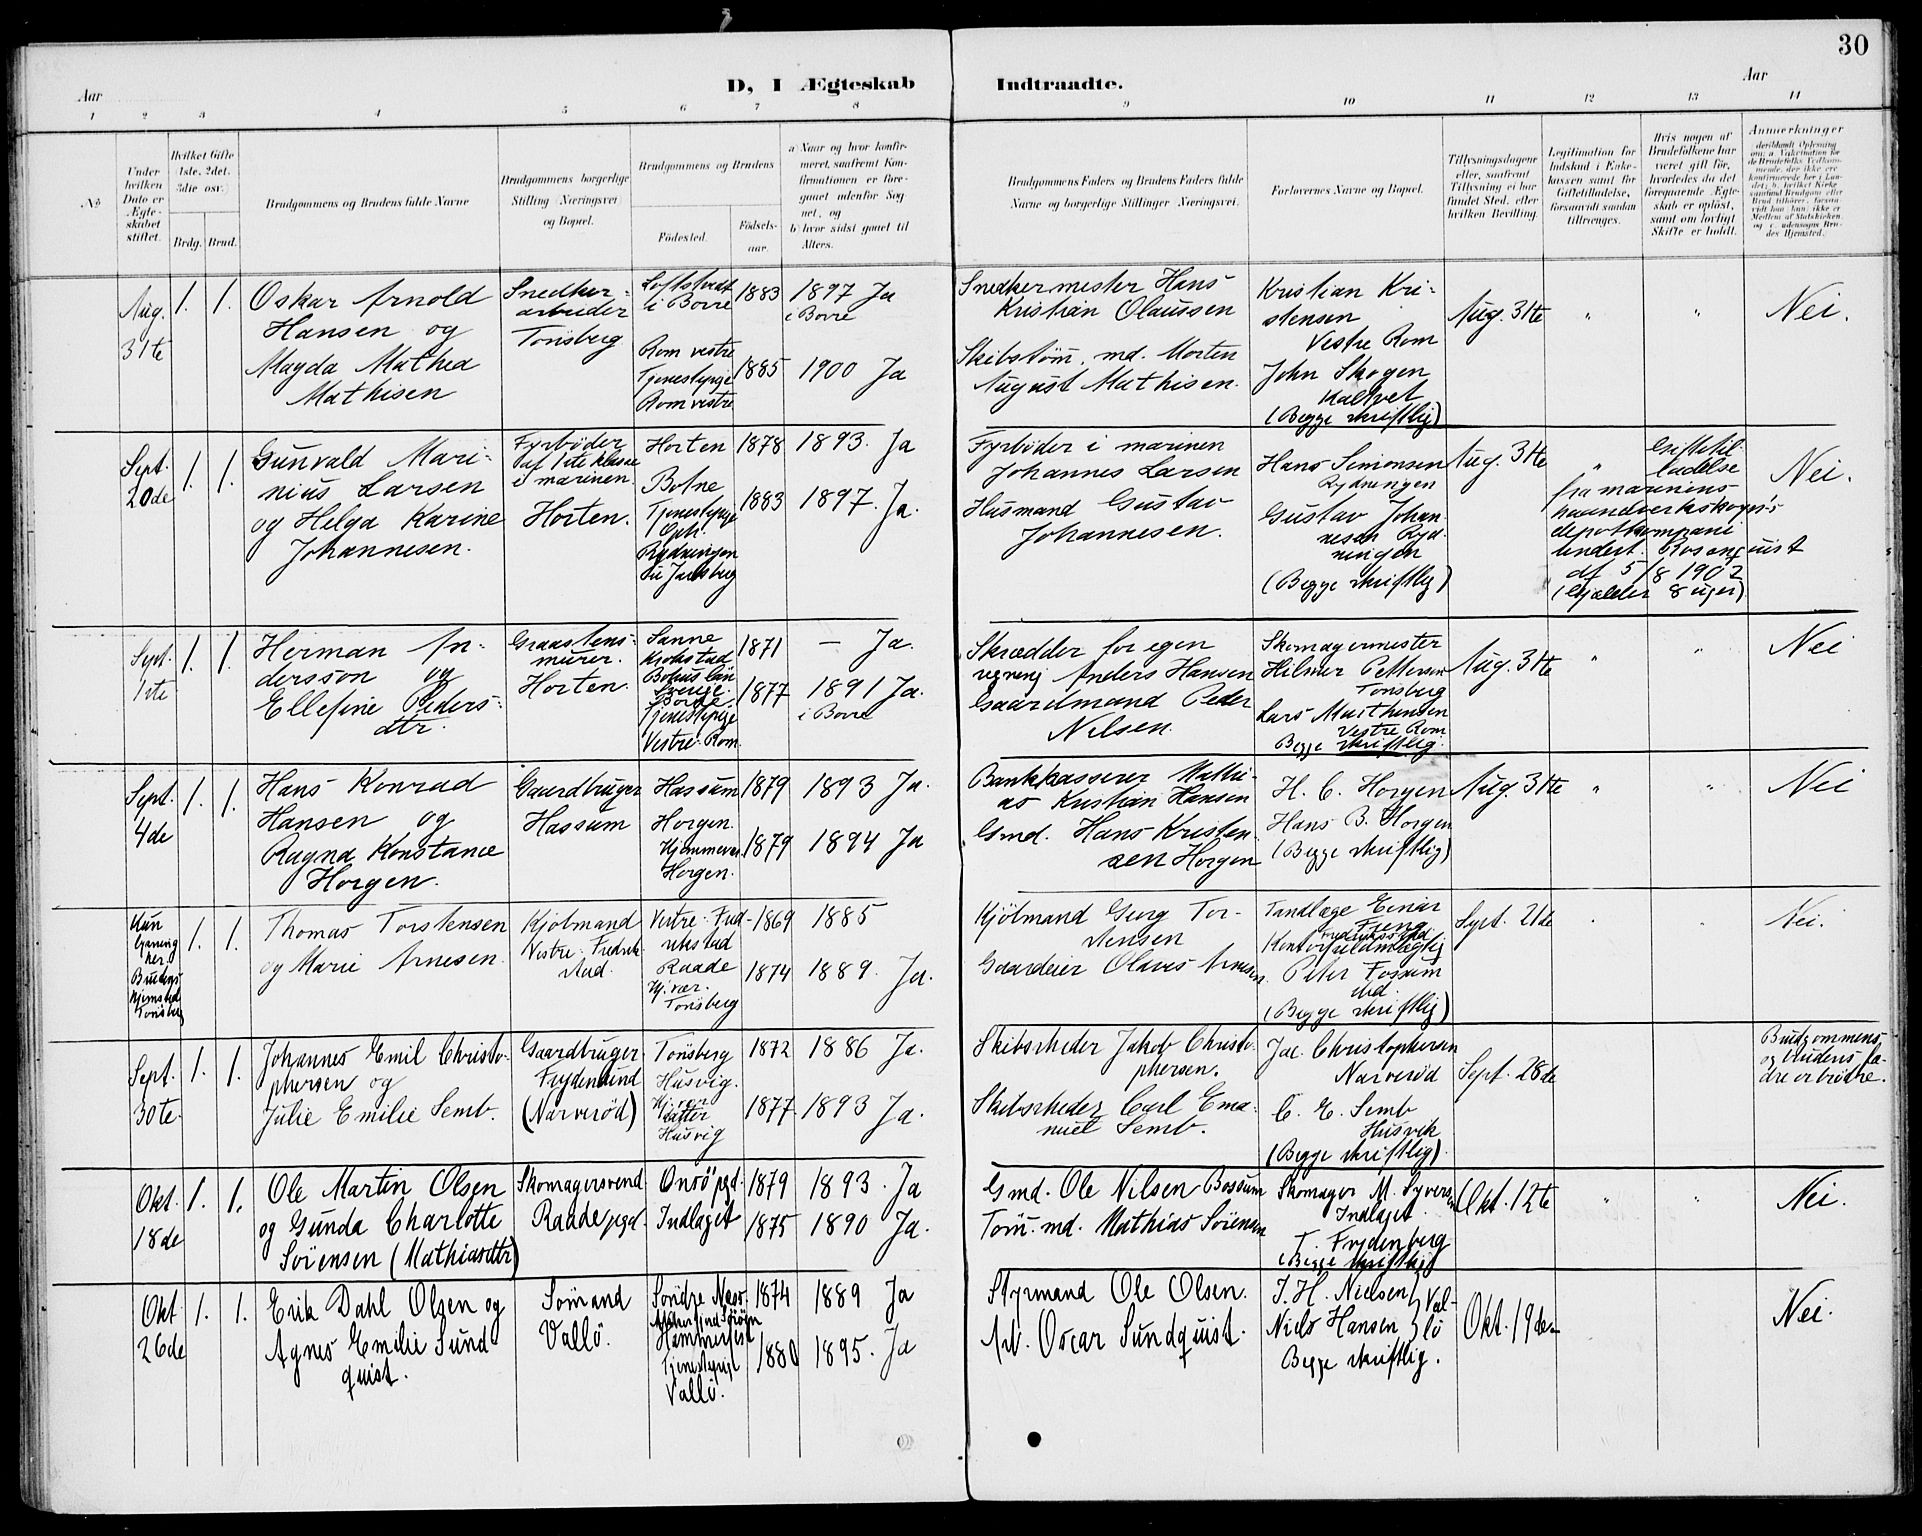 30
D, I Ægteskab Indtraadte.
Aar
Aar
1 2 3 4 5 6 7 8 9 10 11 12 13 14
No
Under
hvilken
Dato er
Ægte-
skabet
stiftet.
Hvilket Gifte
(1ste, 2det,
3die osv.)
Brdg. Brud.
Brudgommens og Brudens fulde Navne
Brudgommens borgerlige
Stilling (Næringsvei)
og Bopæl.
Brudgommens og Brudens
Fødested.
Fødsels-
aar.
a) Naar og hvor konfir-
meret, saafremt Kon-
firmationen er fore-
gaaet udenfor Sog-
net, og
b) hvor sidst gaaet til
Alters.
Brudgommens Faders og Brudens Faders fulde
Navne og borgerlige Stillinger (Næringsvei).
Forlovernes Navne og Bopæl.
Tillysningsdagene
eller, saafremt
Tillysning ei har
fundet Sted, efter
hvilken Bevilling.
Legitimation for
Indskud i Enke-
kassen samt for
Giftetilladelse,
forsaavidt saadan
tiltrænges.
Hvis nogen af
Brudefolkene har
været gift før,
hvorledes da det
foregaaende Ægte-
skab er opløst,
samt om lovligt
Skifte er holdt.
Anmærkninger
Aug.
31te
1. 1.
Oskar Arnold
Hansen og
Magda Mathea
Mathisen
Snedker-
arbeider
Tönsberg
i Borre
Rom vestre
Tjenestepige
Rom vestre
1883
1885
1897 Ja
i Borre
1900 Ja
Snedkermester Hans
Kristian Olaussen
Skibstöm. md. Morten
August Mathisen.
Kristian Kri-
stensen
Vestre Rom
John Skogen
(Begge skriftlig)
Aug. 31te
" "
Nei.
Sept.
20de
1. 1.
Gunvald Mari-
nius Larsen
og Helga Karine
Johannesen.
Fyrbøder
af 1ste klasse
i marinen
Horten.
Horten
Botne
Tjenestepige
Oph.
Rydningen
1878
1883
1893. Ja
1897. Ja.
Fyrbøder i marinen
Johannes Larsen
Husmand Gustav
Johannesen.
Hans Simonsen
Rydningen
Gustav Johan-
nesen Ryd-
ningen
(Begge skriftlig)
Aug. 31te
"
Giftetil-
ladelse
fra marinens
haandverkskorps's
depotkompani
undert. Rosenquist
df 5/8 1902
(Gjælder 8 uger)
Nei.
Sept.
1ste
1. 1.
Herman An-
dersson og
Ellefine Peders-
dtr.
Graastens-
murer.
Horten.
Sanne
Krokstad
Bohus län
Sverige.
Borre.
Tjenestepige
Vestre Rom.
1871
1877
— Ja.
1891 Ja.
i Borre
Skrædder for egen
regning Anders Hansen
Gaardmand Peder
Nilsen.
Skomagermester
Hilmer Petterson
Tönsberg
Lars Matthisen
Vestre Rom
Begge skriftlig.
Aug. 31te
" "
Nei
Sept.
4de
1. 1.
Hans Konrad
Hansen og
Ragna Konstance
Horgen.
Gaardbruger
Hassum
Hassum
Horgen.
Hjemmevær.
Horgen.
1879
1879
1893 Ja.
1894 Ja
Bankkasserer Mathi-
as Kristian Hansen
Gmd. Hans Kristen-
sen Horgen
H. C. Horgen
Hans B. Horgen
(Begge skriftlig)
Aug. 31te
" "
Nei
Kun
lysning
her.
Brudens
Hjemsted
Tönsberg
1. 1.
Thomas Torstensen
og Marie Arnesen.
Kjölmand
Vestre Fredrik-
stad.
Vestre Fred-
rikstad
Raade
Hj. vær.
Tönsberg
1869
1874
1885
1889. Ja.
Kjölmand Georg Tor-
stensen
Gaardeier Olaves Arnesen
Tandlæge Einar
Kontorfuldmægtig
Peter Fossum
(Begge skriftlig)
Sept. 21de
Nei.
Sept.
30te
1. 1.
Johannes Emil Christo-
phersen og
Julie Emilie Semb.
Gaardbruger
Frydenlund
(Narverød)
Tönsberg
Husvig.
Hj. vær.
datter
Husvig
1872
1877
1886 Ja.
1893 Ja.
Skibsrheder Jakob Christo-
phersen.
Skibsrheder Carl Ema-
nuel Semb.
Jac. Christophersen
Narverød
C. E. Semb
Husvik
(Begge skriftlig)
Sept. 28de
Brudgommens
og brudens fæ-
dre er brødre.
Okt.
18de
1. 1.
Ole Martin Olsen
og Gunda Charlotte
Sörensen (Mathiasdtr)
Skomagersvend
Raade pgd.
Onsö pgd.
Indlaget
1879
1875
1893. Ja
1890 Ja.
Gmd. Ole Nilsen Bossum
Töm. md. Mathias Sörensen
Skomager M. Syversen
Indlaget
T. Frydenberg
(Begge skriftlig)
Okt. 12te
" "
Nei.
Okt
26de
1. 1.
Erik Dahl Olsen og
Agnes Emilie Sund-
quist.
Sömand
Vallö.
Söndre Næs.
Hammerfest
Tjenestepige
Vallö.
1874
1880
1889 Ja
1895. Ja
Styrmand Ole Olsen.
Arb. Oscar Sundquist.
J. H. Nielsen } Val-
Niels Hansen } lö
Begge skriftlig.
Okt. 19de
Nei.